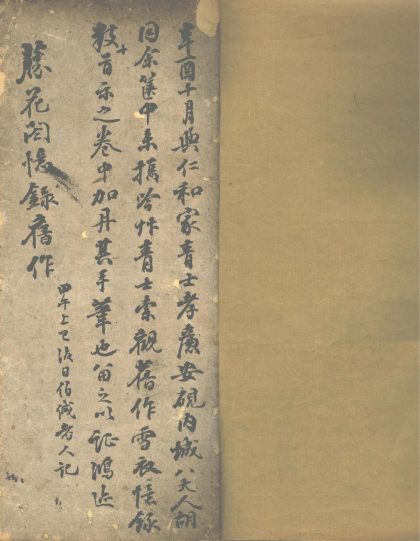 辛酉十月與仁和家青士孝廉安硯內城八大人胡
同余篋中未攜唫艸青士索觀舊作雪夜憶錄
數十首示之卷中加丹其手筆也留之以證鴻迹
甲午上巳後日伯緘老人記
藤花閣憶錄舊作